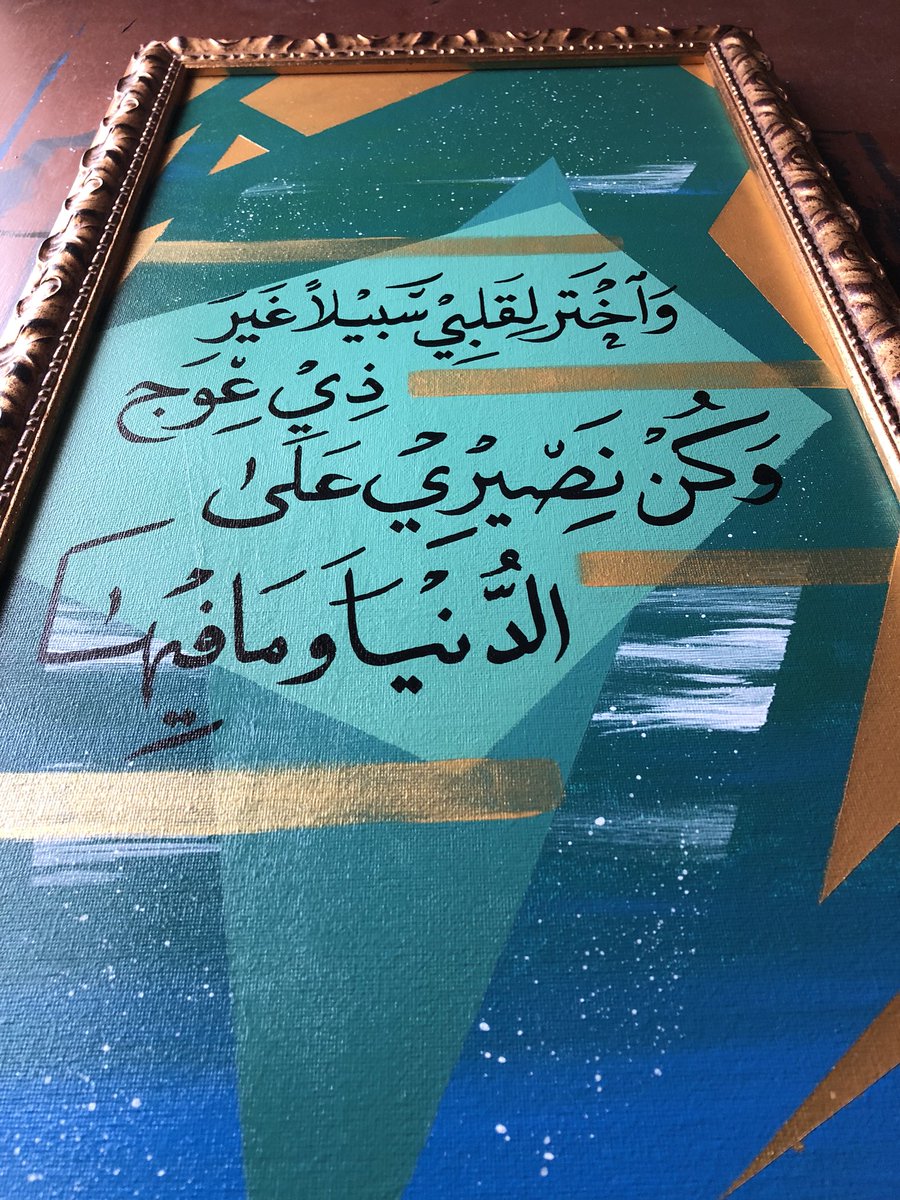 وَاخْتَر لِقَلبِيْ سَّبَيْلاً غَيَرَ
ذِيْ عِّوَج
وَكُنْ نَصِّيْرِيْ عَلَىٰ
الدُّنْيَا وَمَا فِيْهَا